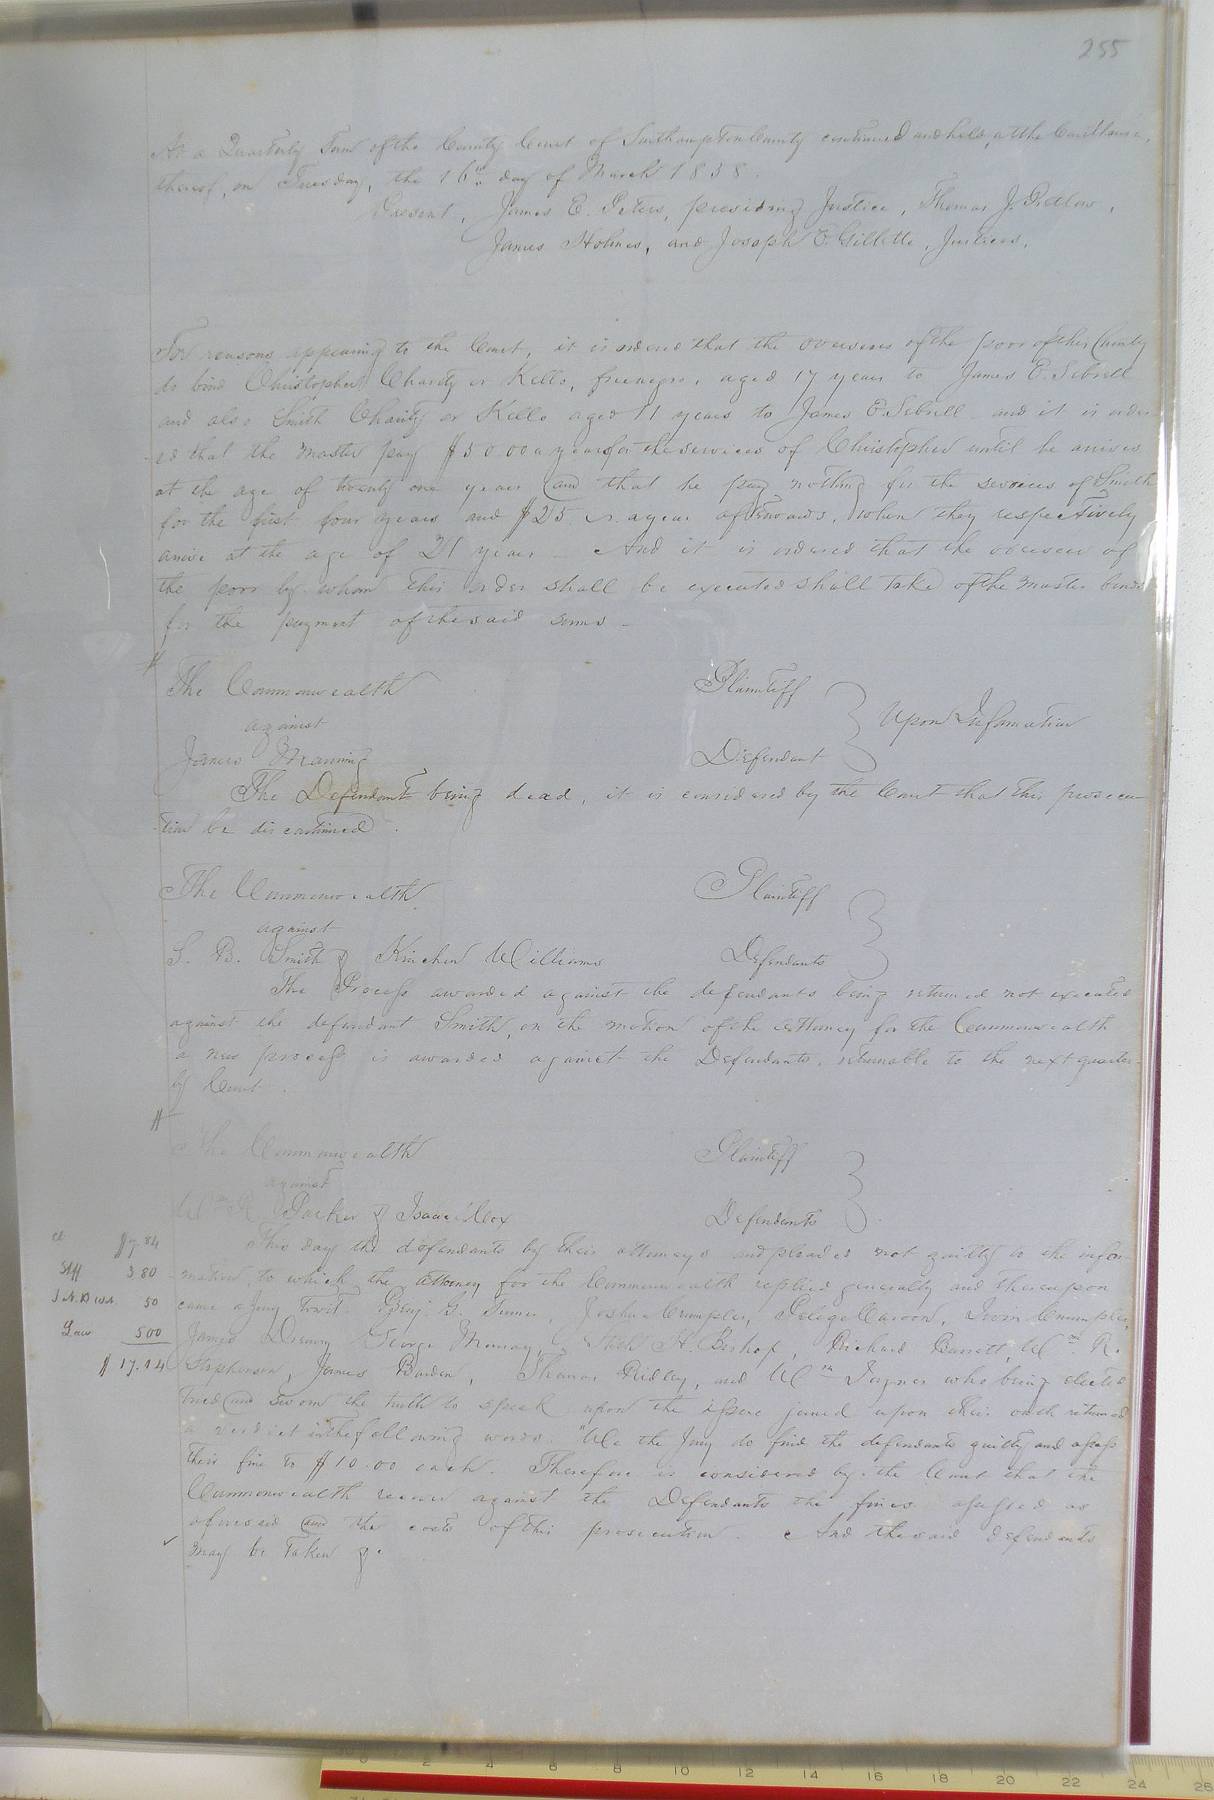 255
At a Quarterly Term of the County Court of Southampton County continued and held, at the Courthouse,
thereof, on Tuesday, the 16th day of March 1858.
Present, James E. Peters, presiding Justice, Thomas J. Pretlow,
James Holmes, and Joseph E. Gillette, Justices.
For reasons appearing to the Court, it is ordered that the overseers of the poor of this County
do bind Christopher Charity or Kello, free negro, aged 17 years to James E. Sebrell
and also Smith Charity or Kello aged 11 years to James E. Sebrell and it is order
ed that the master pay $50.00 a year for the services of Christopher until he arrives
at the age of twenty one years and that he pay nothing for the services of Smith
for the first four years and $25 a year afterwards, when they respectively
arrive at the age of 21 years _ And it is ordered that the overseer of
the poor by whom this order shall be executed shall take of the master bonds
for the payment of the said sums _
The Commonwealth Plaintiff
against Upon Information
James Manning Defendant
The Defendant being dead, it is considered by the Court that this prosecu
tion be discontinued.
The Commonwealth Plaintiff
against
S. B. Smith & Kinchen Williams Defendants
The Process awarded against the defendants being returned not executed
against the defendant Smith, on the motion of the Attorney for the Commonwealth
a new process is awarded against the Defendants, returnable to the next quarter-
ly Court.
The Commonwealth Plaintiff
against
Wm R. Parker & Isaac Cox Defendants
Cl $7.84
Shff 3 80
50
Law 500
$17.14
This day the defendants by their attorneys and pleaded not guilty to the infor
mation, to which the attorney for the Commonwealth replied generally and thereupon
came a Jury Towit. Benj. G. Turner, Joshua Crumpler, Crumpler,
James Drewry, George Murray, H. Bishop, Richard Barrett, Wm R.
Stephenson, James Barden, Thomas Ridley, and Wm Joyner who being elected
tried and sworn the truth to speak upon the issue joined upon their oath returned
a verdict in the following words. "We the Jury do find the defendants guilty and assess
their fine to $10.00 each. Therefore is considered by the Court that the
Commonwealth recover against the Defendants the fines assessed as
aforesaid and the costs of this prosecution. And the said defendants
may be taken &c.
0 2 4 6 8 10 12 14 16 18 20 22 24 26